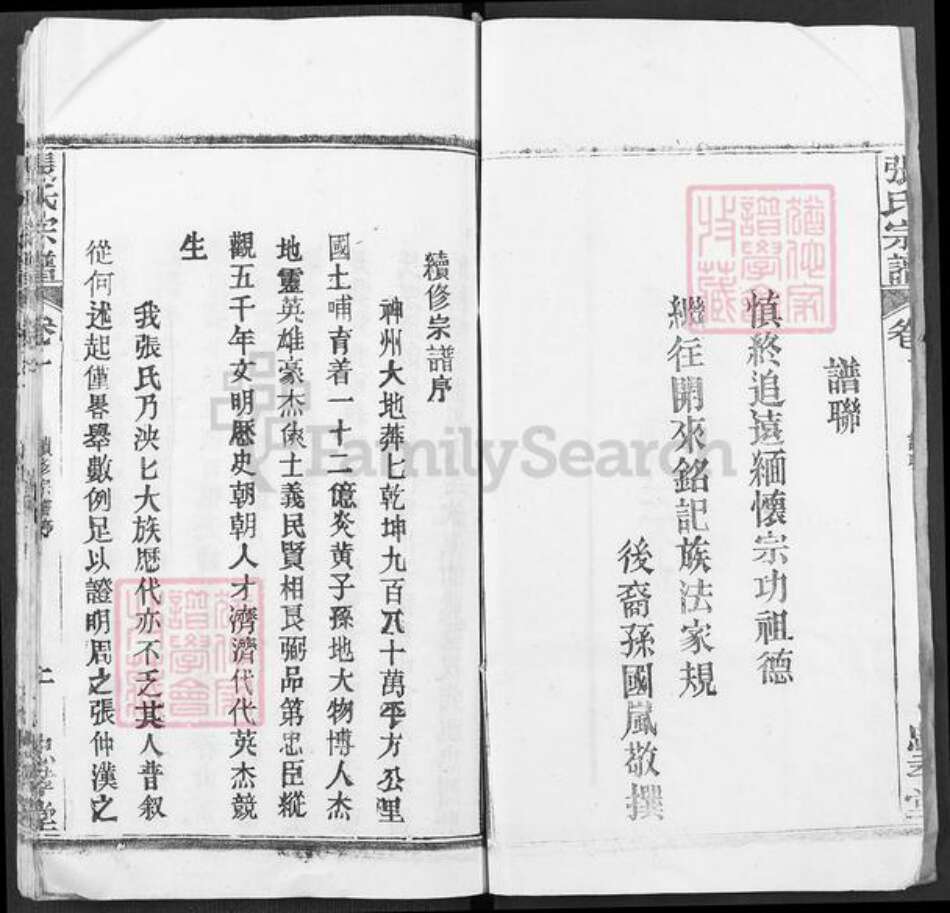 張氏宗譜
卷
譜聯
慎終追遠緬懷宗功祖德
繼往開來銘記族法家規
後裔孫國嵐敬撰
續修宗譜序
神州大地莽匕乾坤九百六十萬平方公里
國土哺育着一十二億炎黃子孫地大物博人杰
地靈英雄豪杰俠士義民賢相良弼品第忠臣縱
觀五千年文明歷史朝朝人才濟濟代代英杰競
生
我張氏乃泱匕大族歷代亦不乏其人普叙
從何述起僅畧舉數例足以證明周之張仲漢之
張氏宗譜
卷一
續修宗譜序
FamilySearch